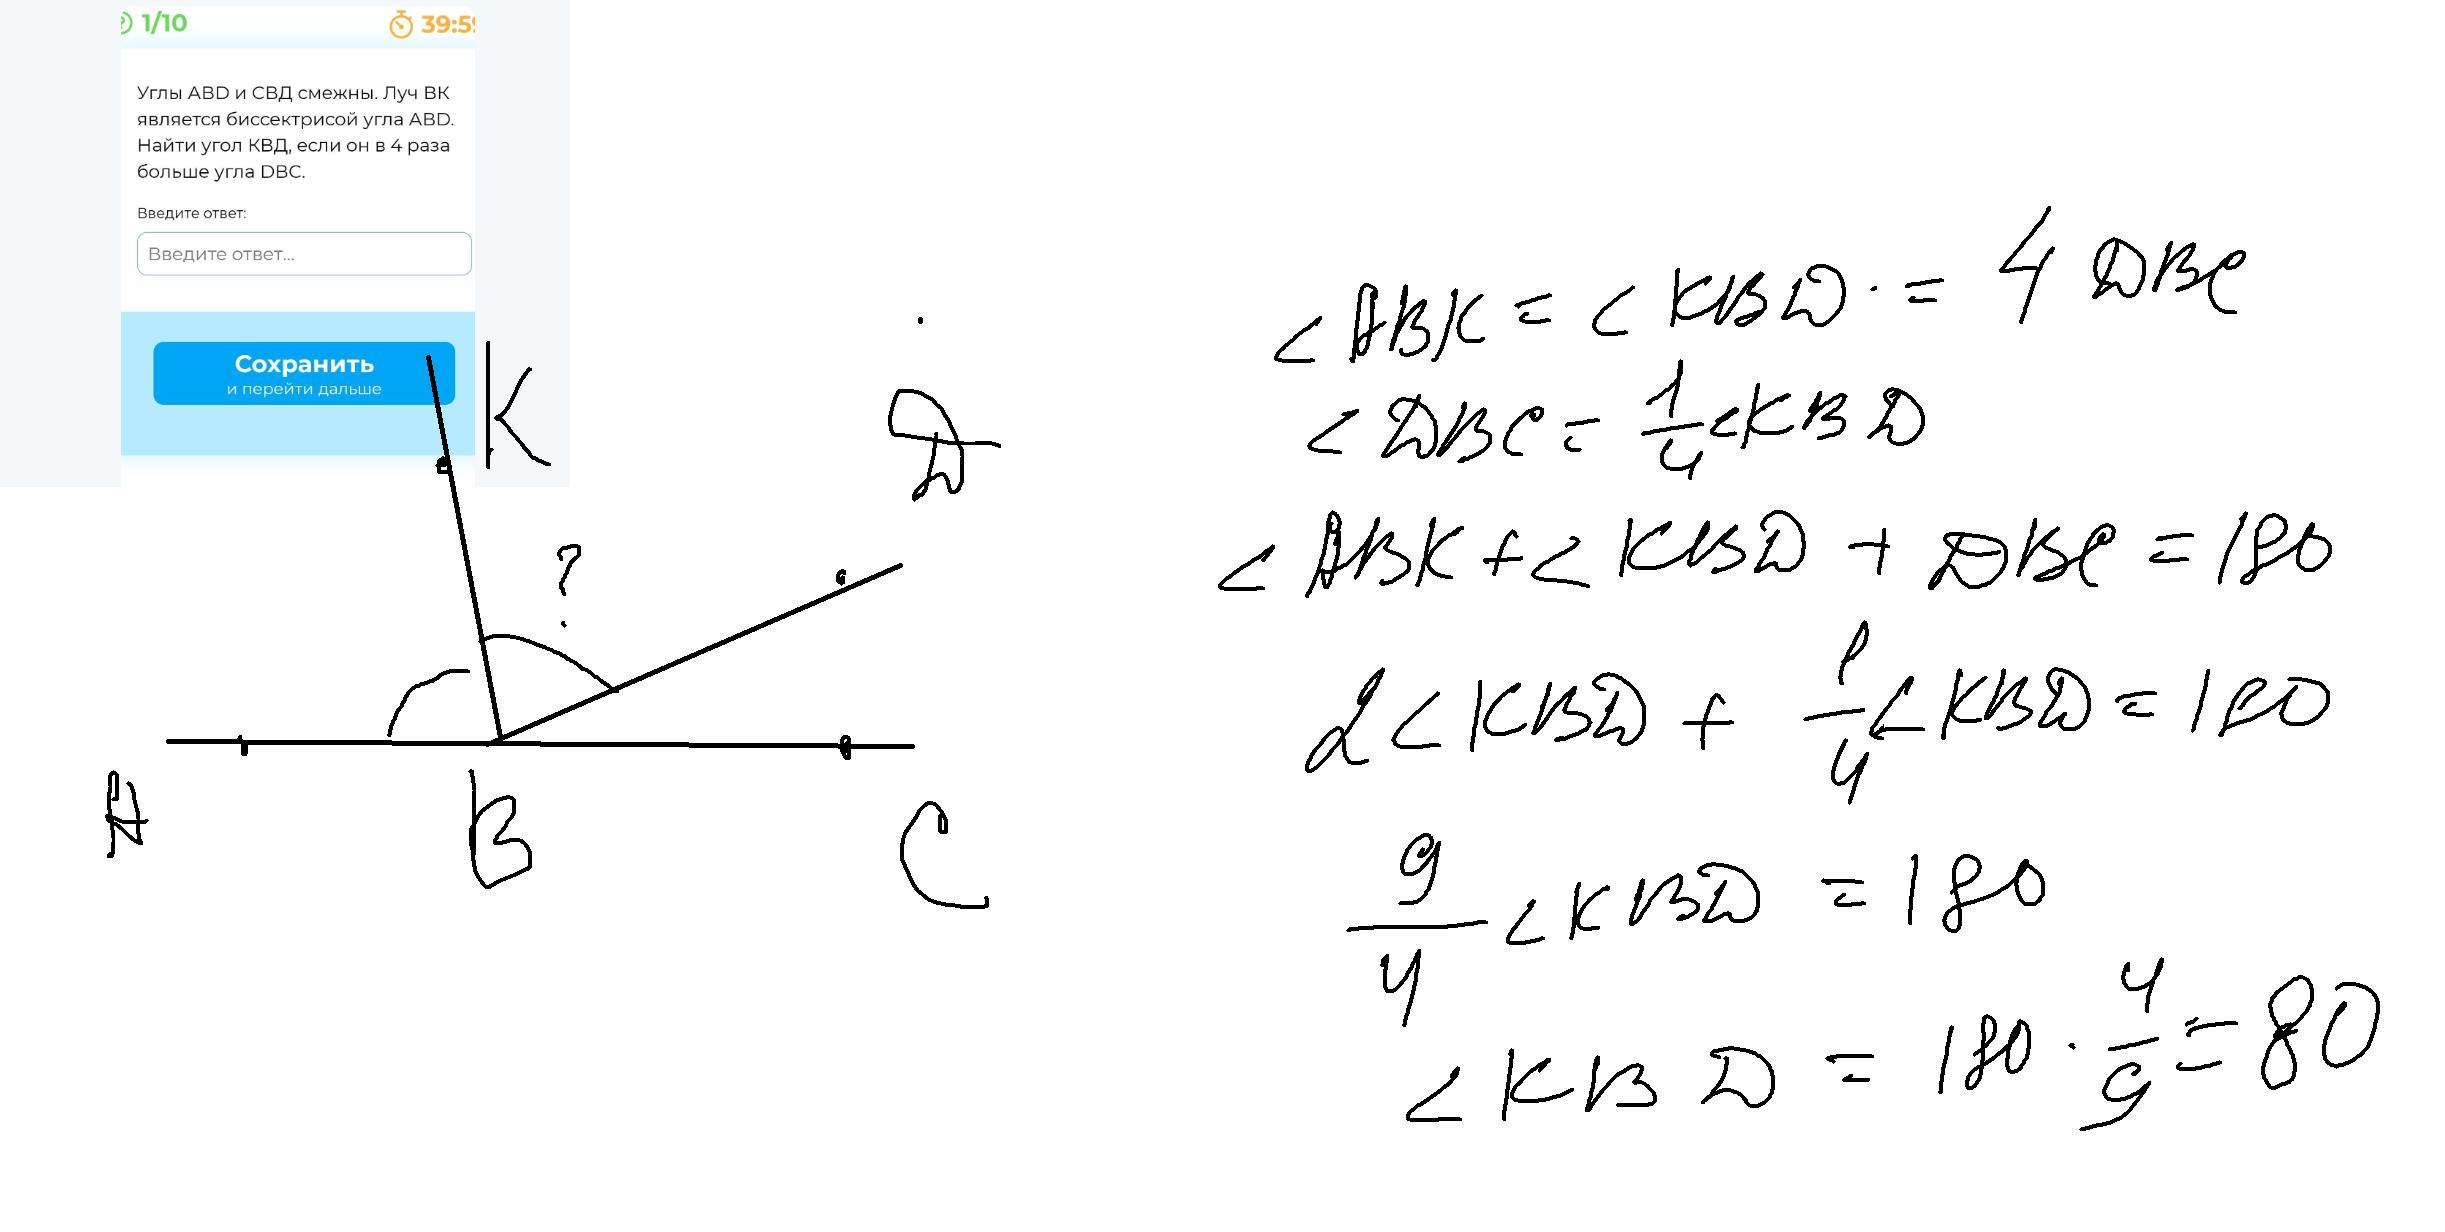 1/10
39:59
Углы ABD и СВД смежны. Луч ВК
является биссектрисой угла ABD.
Найти угол КВД, если он в 4 раза
больше угла DBC.
Введите ответ:
Введите ответ...
Сохранить
и перейти дальше
K
D
?
A
B
C
<ABK = <KBD = 4 DBC
<DBC = 1/4 <KBD
<ABK + <KBD + DBC = 180
2<KBD + 1/4 <KBD = 180
9/4 <KBD = 180
<KBD = 180 · 4/9 = 80